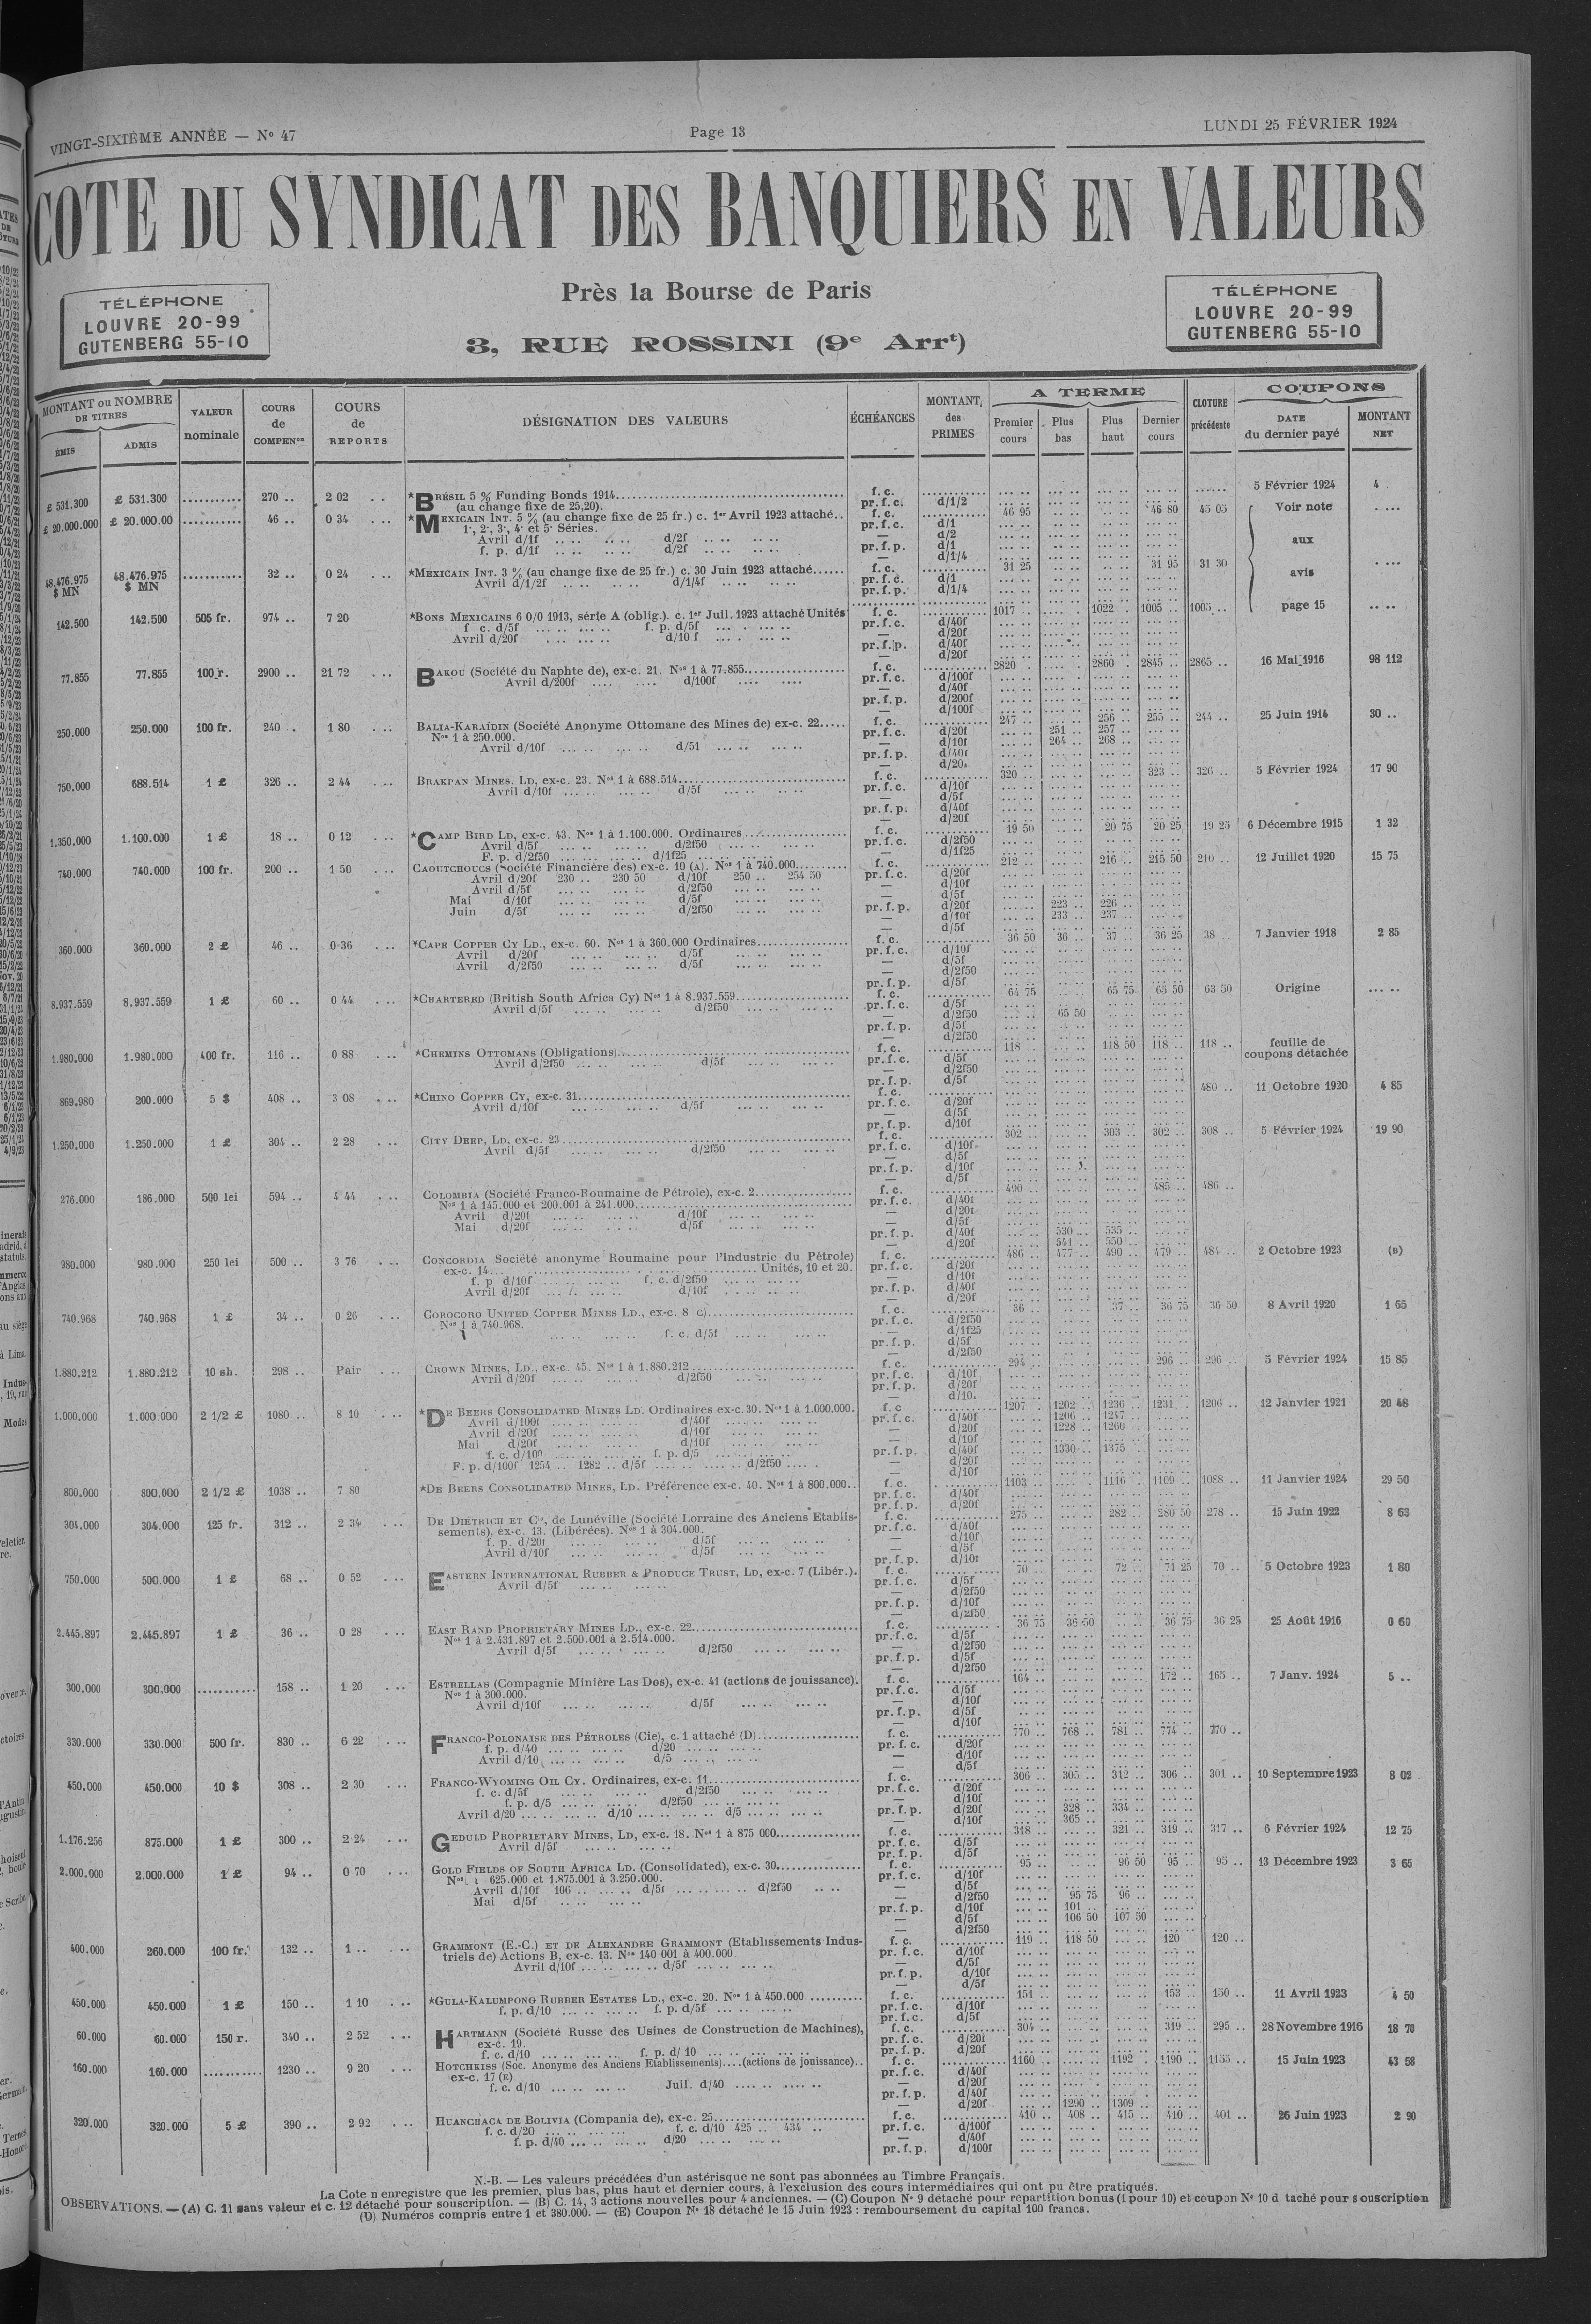 VINGT-SIXIÈME ANNÉE — No 47
Page 13
LUNDI 25 FÉVRIER 1924
COTE DU SYNDICAT DES BANQUIERS EN VALEURS
Près la Bourse de Paris
3, RUE ROSSINI (9e Arrt)
TÉLÉPHONE
LOUVRE 20-99
GUTENBERG 55-10
TÉLÉPHONE
LOUVRE 20-99
GUTENBERG 55-10
MONTANT ou NOMBRE DE TITRES
ÉMIS ADMIS
VALEUR nominale
COURS de COMPENon
COURS de REPORTS
DÉSIGNATION DES VALEURS
ÉCHÉANCES
MONTANT des PRIMES
A TERME
Premier cours Plus bas Plus haut Dernier cours
CLOTURE précédente
COUPONS
DATE du dernier payé
MONTANT NET
£ 531.300 £ 531.300 270 .. 2 02 *BRÉSIL 5 % Funding Bonds 1914 f. c. 5 Février 1924 4
(au change fixe de 25,20). pr. f. c. d/1/2
£ 20.000.000 £ 20.000.00 46 .. 0 34 *MEXICAIN INT. 5 % (au change fixe de 25 fr.) c. 1er Avril 1923 attaché.. f. c. 46 95 46 80 45 05 Voir note
1e, 2e, 3e, 4e et 5e Séries. pr. f. c. d/1
Avril d/1f d/2f — d/2 aux
f. p. d/1f d/2f pr. f. p. d/1
— d/1/4
48.476.975 $ MN 48.476.975 $ MN 32 .. 0 24 *MEXICAIN INT. 3 % (au change fixe de 25 fr.) c. 30 Juin 1923 attaché f. c. 31 25 31 95 31 30 avis
Avril d/1/2f d/1/4f pr. f. c. d/1
pr. f. p. d/1/4
142.500 142.500 505 fr. 974 .. 7 20 *BONS MEXICAINS 6 0/0 1913, série A (oblig.). c. 1er Juil. 1923 attaché Unités f. c. 1017 1022 1005 1005 .. page 15
f c. d/5f f. p. d/5f pr. f. c. d/40f
Avril d/20f d/10 f — d/20f
pr. f. p. d/40f
— d/20f
77.855 77.855 100 r. 2900 .. 21 72 BAKOU (Société du Naphte de), ex-c. 21. Nos 1 à 77.855 f. c. 2820 2860 2845 .. 2865 .. 16 Mai 1916 98 112
Avril d/200f d/100f pr. f. c. d/100f
— d/40f
pr. f. p. d/200f
— d/100f
250.000 250.000 100 fr. 240 . 1 80 BALIA-KARAÏDIN (Société Anonyme Ottomane des Mines de) ex-c. 22 f. c. 247 .. 256 .. 255 .. 244 .. 25 Juin 1914 30 ..
Nos 1 à 250.000. pr. f. c. d/20f 251 .. 257 ..
Avril d/10f d/5f — d/10f 264 .. 268 ..
pr. f. p. d/40f
— d/20f
750.000 688.514 1 £ 326 .. 2 44 BRAKPAN MINES, LD, ex-c. 23. Nos 1 à 688.514 f. c. 320 .. 323 .. 326 .. 5 Février 1924 17 90
Avril d/10f d/5f pr. f. c. d/10f
— d/5f
pr. f. p. d/40f
— d/20f
1.350.000 1.100.000 1 £ 18 .. 0 12 *CAMP BIRD LD, ex-c. 43. Nos 1 à 1.100.000. Ordinaires f. c. 19 50 20 75 20 25 19 25 6 Décembre 1915 1 32
Avril d/5f d/2f50 pr. f. c. d/2f50
F. p. d/2f50 d/1f25 — d/1f25
740.000 740.000 100 fr. 200 .. 1 50 CAOUTCHOUCS (Société Financière des) ex-c. 10 (A). Nos 1 à 740.000 f. c. 212 .. 216 .. 215 50 210 .. 12 Juillet 1920 15 75
Avril d/20f 230 .. 230 50 d/10f 250 .. 254 50 pr. f. c. d/20f
Avril d/5f d/2f50 — d/10f
Mai d/10f d/5f — d/5f
Juin d/5f d/2f50 pr. f. p. d/20f 223 .. 226 ..
— d/10f 233 .. 237 ..
— d/5f
360.000 360.000 2 £ 46 .. 0 36 *CAPE COPPER CY LD., ex-c. 60. Nos 1 à 360.000 Ordinaires f. c. 36 50 36 .. 37 .. 36 25 38 .. 7 Janvier 1918 2 85
Avril d/20f d/5f pr. f. c. d/10f
Avril d/2f50 d/5f — d/5f
— d/2f50
pr. f. p. d/5f
8.937.559 8.937.559 1 £ 60 .. 0 44 *CHARTERED (British South Africa Cy) Nos 1 à 8.937.559 f. c. 64 75 65 75 65 50 63 50 Origine
Avril d/5f d/2f50 pr. f. c. d/5f
— d/2f50 65 50
pr. f. p. d/5f
— d/2f50
1.980.000 1.980.000 400 fr. 116 .. 0 88 *CHEMINS OTTOMANS (Obligations) f. c. 118 .. 118 50 118 .. 118 .. feuille de coupons détachée
Avril d/2f50 d/5f pr. f. c. d/5f
— d/2f50
pr. f. p. d/5f
869.980 200.000 5 $ 408 .. 3 08 *CHINO COPPER CY, ex-c. 31 f. c. 480 .. 11 Octobre 1920 4 85
Avril d/10f d/5f pr. f. c. d/20f
— d/5f
pr. f. p. d/10f
1.250.000 1.250.000 1 £ 304 .. 2 28 CITY DEEP, LD, ex-c. 23 f. c. 302 .. 303 .. 302 .. 308 .. 5 Février 1924 19 90
Avril d/5f d/2f50 pr. f. c. d/10f
— d/5f
pr. f. p. d/10f
— d/5f
276.000 186.000 500 lei 594 .. 4 44 COLOMBIA (Société Franco-Roumaine de Pétrole), ex-c. 2 f. c. 490 .. 485 .. 486 ..
Nos 1 à 145.000 et 200.001 à 241.000 pr. f. c. d/40f
Avril d/20f d/10f — d/20f
Mai d/20f d/5f — d/5f
pr. f. p. d/40f 530 .. 535 ..
— d/20f 541 .. 550 ..
980.000 980.000 250 lei 500 .. 3 76 CONCORDIA Société anonyme Roumaine pour l'Industrie du Pétrole) f. c. 486 .. 477 .. 490 .. 479 .. 484 .. 2 Octobre 1923 (B)
ex-c. 14 Unités, 10 et 20. pr. f. c. d/20f
f. p d/10f f. c. d/2f50 — d/10f
Avril d/20f d/10f pr. f. p. d/40f
— d/20f
740.968 740.968 1 £ 34 .. 0 26 COROCORO UNITED COPPER MINES LD., ex-c. 8 c) f. c. 36 .. 37 .. 36 75 36 50 8 Avril 1920 1 65
Nos 1 à 740.968. pr. f. c. d/2f50
f. c. d/5f — d/1f25
pr. f. p. d/5f
— d/2f50
1.880.212 1.880.212 10 sh. 298 .. Pair CROWN MINES, LD., ex-c. 45. Nos 1 à 1.880.212 f. c. 294 .. 296 .. 296 .. 5 Février 1924 15 85
Avril d/20f d/2f50 pr. f. c. d/10f
pr. f. p. d/20f
— d/10.
1.000.000 1.000.000 2 1/2 £ 1080 .. 8 10 *DE BEERS CONSOLIDATED MINES LD. Ordinaires ex-c. 30. Nos 1 à 1.000.000. f. c 1207 . 1202 .. 1236 .. 1231 .. 1206 .. 12 Janvier 1921 20 48
Avril d/100f d/40f pr. f. c. d/40f 1206 .. 1247 ..
Avril d/20f d/10f — d/20f 1228 .. 1260 ..
Mai d/20f d/10f — d/10f
f. c. d/100 f. p. d/5 pr. f. p. d/40f 1330 .. 1375 ..
F. p. d/100f 1254 .. 1282 .. d/5f d/2f50 — d/20f
— d/10f
800.000 800.000 2 1/2 £ 1038 .. 7 80 *DE BEERS CONSOLIDATED MINES, LD. Préférence ex-c. 40. Nos 1 à 800.000.. f. c. 1103 .. 1116 .. 1109 .. 1088 .. 11 Janvier 1924 29 50
pr. f. c. d/40f
pr. f. p. d/20f
304.000 304.000 125 fr. 312 .. 2 34 DE DIÉTRICH ET Cie, de Lunéville (Société Lorraine des Anciens Etablis- f. c. 275 .. 282 .. 280 50 278 .. 15 Juin 1922 8 63
sements), ex-c. 13. (Libérées). Nos 1 à 304.000. pr. f. c. d/40f
f. p. d/20f d/5f — d/10f
Avril d/10f d/5f — d/5f
pr. f. p. d/10f
750.000 500.000 1 £ 68 .. 0 52 EASTERN INTERNATIONAL RUBBER & PRODUCE TRUST, LD, ex-c. 7 (Libér.). f. c. 70 .. 72 .. 71 25 70 .. 5 Octobre 1923 1 80
Avril d/5f pr. f. c. d/5f
— d/2f50
pr. f. p. d/10f
— d/2f50
2.445.897 2.445.897 1 £ 36 .. 0 28 EAST RAND PROPRIETARY MINES LD., ex-c. 22 f. c. 36 75 36 50 36 75 36 25 25 Août 1916 0 60
Nos 1 à 2.431.897 et 2.500.001 à 2.514.000. pr. f. c. d/5f
Avril d/5f d/2f50 — d/2f50
pr. f. p. d/5f
— d/2f50
300.000 300.000 158 .. 1 20 ESTRELLAS (Compagnie Minière Las Dos), ex-c. 41 (actions de jouissance). f. c. 164 .. 172 .. 165 .. 7 Janv. 1924 5 ..
Nos 1 à 300.000. pr. f. c. d/5f
Avril d/10f d/5f — d/10f
pr. f. p. d/5f
— d/10f
330.000 330.000 500 fr. 830 .. 6 22 FRANCO-POLONAISE DES PÉTROLES (Cie), c. 1 attaché (D) f. c. 770 .. 768 .. 781 .. 774 .. 770 ..
f. p. d/40 d/20 pr. f. c. d/20f
Avril d/10 d/5 — d/10f
— d/5f
450.000 450.000 10 $ 308 .. 2 30 FRANCO-WYOMING OIL CY. Ordinaires, ex-c. 11 f. c. 306 .. 305 .. 312 .. 306 .. 301 .. 10 Septembre 1923 8 02
f. c. d/5f d/2f50 pr. f. c. d/20f
f. p. d/5 d/2f50 — d/10f
Avril d/20 d/10 d/5 pr. f. p. d/20f 328 .. 334 ..
— d/10f 365 ..
1.176.256 875.000 1 £ 300 .. 2 24 GEDULD PROPRIETARY MINES, LD, ex-c. 18. Nos 1 à 875 000 f. c. 318 .. 321 .. 319 .. 317 .. 6 Février 1924 12 75
Avril d/5f pr. f. c. d/5f
pr. f. p. d/5f
2.000.000 2.000.000 1 £ 94 .. 0 70 GOLD FIELDS OF SOUTH AFRICA LD. (Consolidated), ex-c. 30 f. c. 95 .. 96 50 95 .. 95 .. 13 Décembre 1923 3 65
Nos 1 625.000 et 1.875.001 à 3.250.000. pr. f. c. d/10f
Avril d/10f 106 .. d/5f d/2f50 — d/5f
Mai d/5f — d/2f50 95 75 96 ..
pr. f. p. d/10f 101 ..
— d/5f 106 50 107 50
— d/2f50
400.000 260.000 100 fr. 132 .. 1 .. GRAMMONT (E.-C.) ET DE ALEXANDRE GRAMMONT (Etablissements Indus- f. c. 119 .. 118 50 120 120 ..
triels de) Actions B, ex-c. 13. Nos 140 001 à 400.000. pr. f. c. d/10f
Avril d/10f d/5f — d/5f
pr. f. p. d/10f
— d/5f
450.000 450.000 1 £ 150 .. 1 10 *GULA-KALUMPONG RUBBER ESTATES LD., ex-c. 20. Nos 1 à 450.000 f. c. 151 .. 153 .. 150 .. 11 Avril 1923 4 50
f. p. d/10 f. p. d/5f pr. f. c. d/10f
pr. f. c. d/5f
60.000 60.000 150 r. 340 .. 2 52 HARTMANN (Société Russe des Usines de Construction de Machines), f. c. 304 .. 319 .. 295 .. 28 Novembre 1916 18 70
ex-c. 19. pr. f. c. d/20f
f. c. d/10 f. p. d/ 10 pr. f. p. d/20f
160.000 160.000 1230 .. 9 20 HOTCHKISS (Soc. Anonyme des Anciens Etablissements)....(actions de jouissance).. f. c. 1160 .. 1192 . 1190 .. 1155 .. 15 Juin 1923 43 58
ex-c. 17 (E) pr. f. c. d/40f
f. c. d/10 Juil. d/40 — d/20f
pr. f. p. d/40f
— d/20f 1290 .. 1309 ..
320.000 320.000 5 £ 390 .. 2 92 HUANCHACA DE BOLIVIA (Compania de), ex-c. 25 f. c. 410 .. 408 .. 415 .. 410 .. 401 .. 26 Juin 1923 2 90
f. c. d/20 f. c. d/10 425 .. 434 .. pr. f. c. d/100f
f. p. d/40 d/20 — d/40f
pr. f. p. d/100f
N.-B. — Les valeurs précédées d'un astérisque ne sont pas abonnées au Timbre Français.
La Cote n enregistre que les premier, plus bas, plus haut et dernier cours, à l'exclusion des cours intermédiaires qui ont pu être pratiqués.
OBSERVATIONS. — (A) C. 11 sans valeur et c. 12 détaché pour souscription. — (B) C. 14, 3 actions nouvelles pour 4 anciennes. — (C) Coupon No 9 détaché pour repartition bonus (1 pour 10) et coupon No 10 d taché pour souscription
(D) Numéros compris entre 1 et 380.000. — (E) Coupon No 18 détaché le 15 Juin 1923 : remboursement du capital 100 francs.